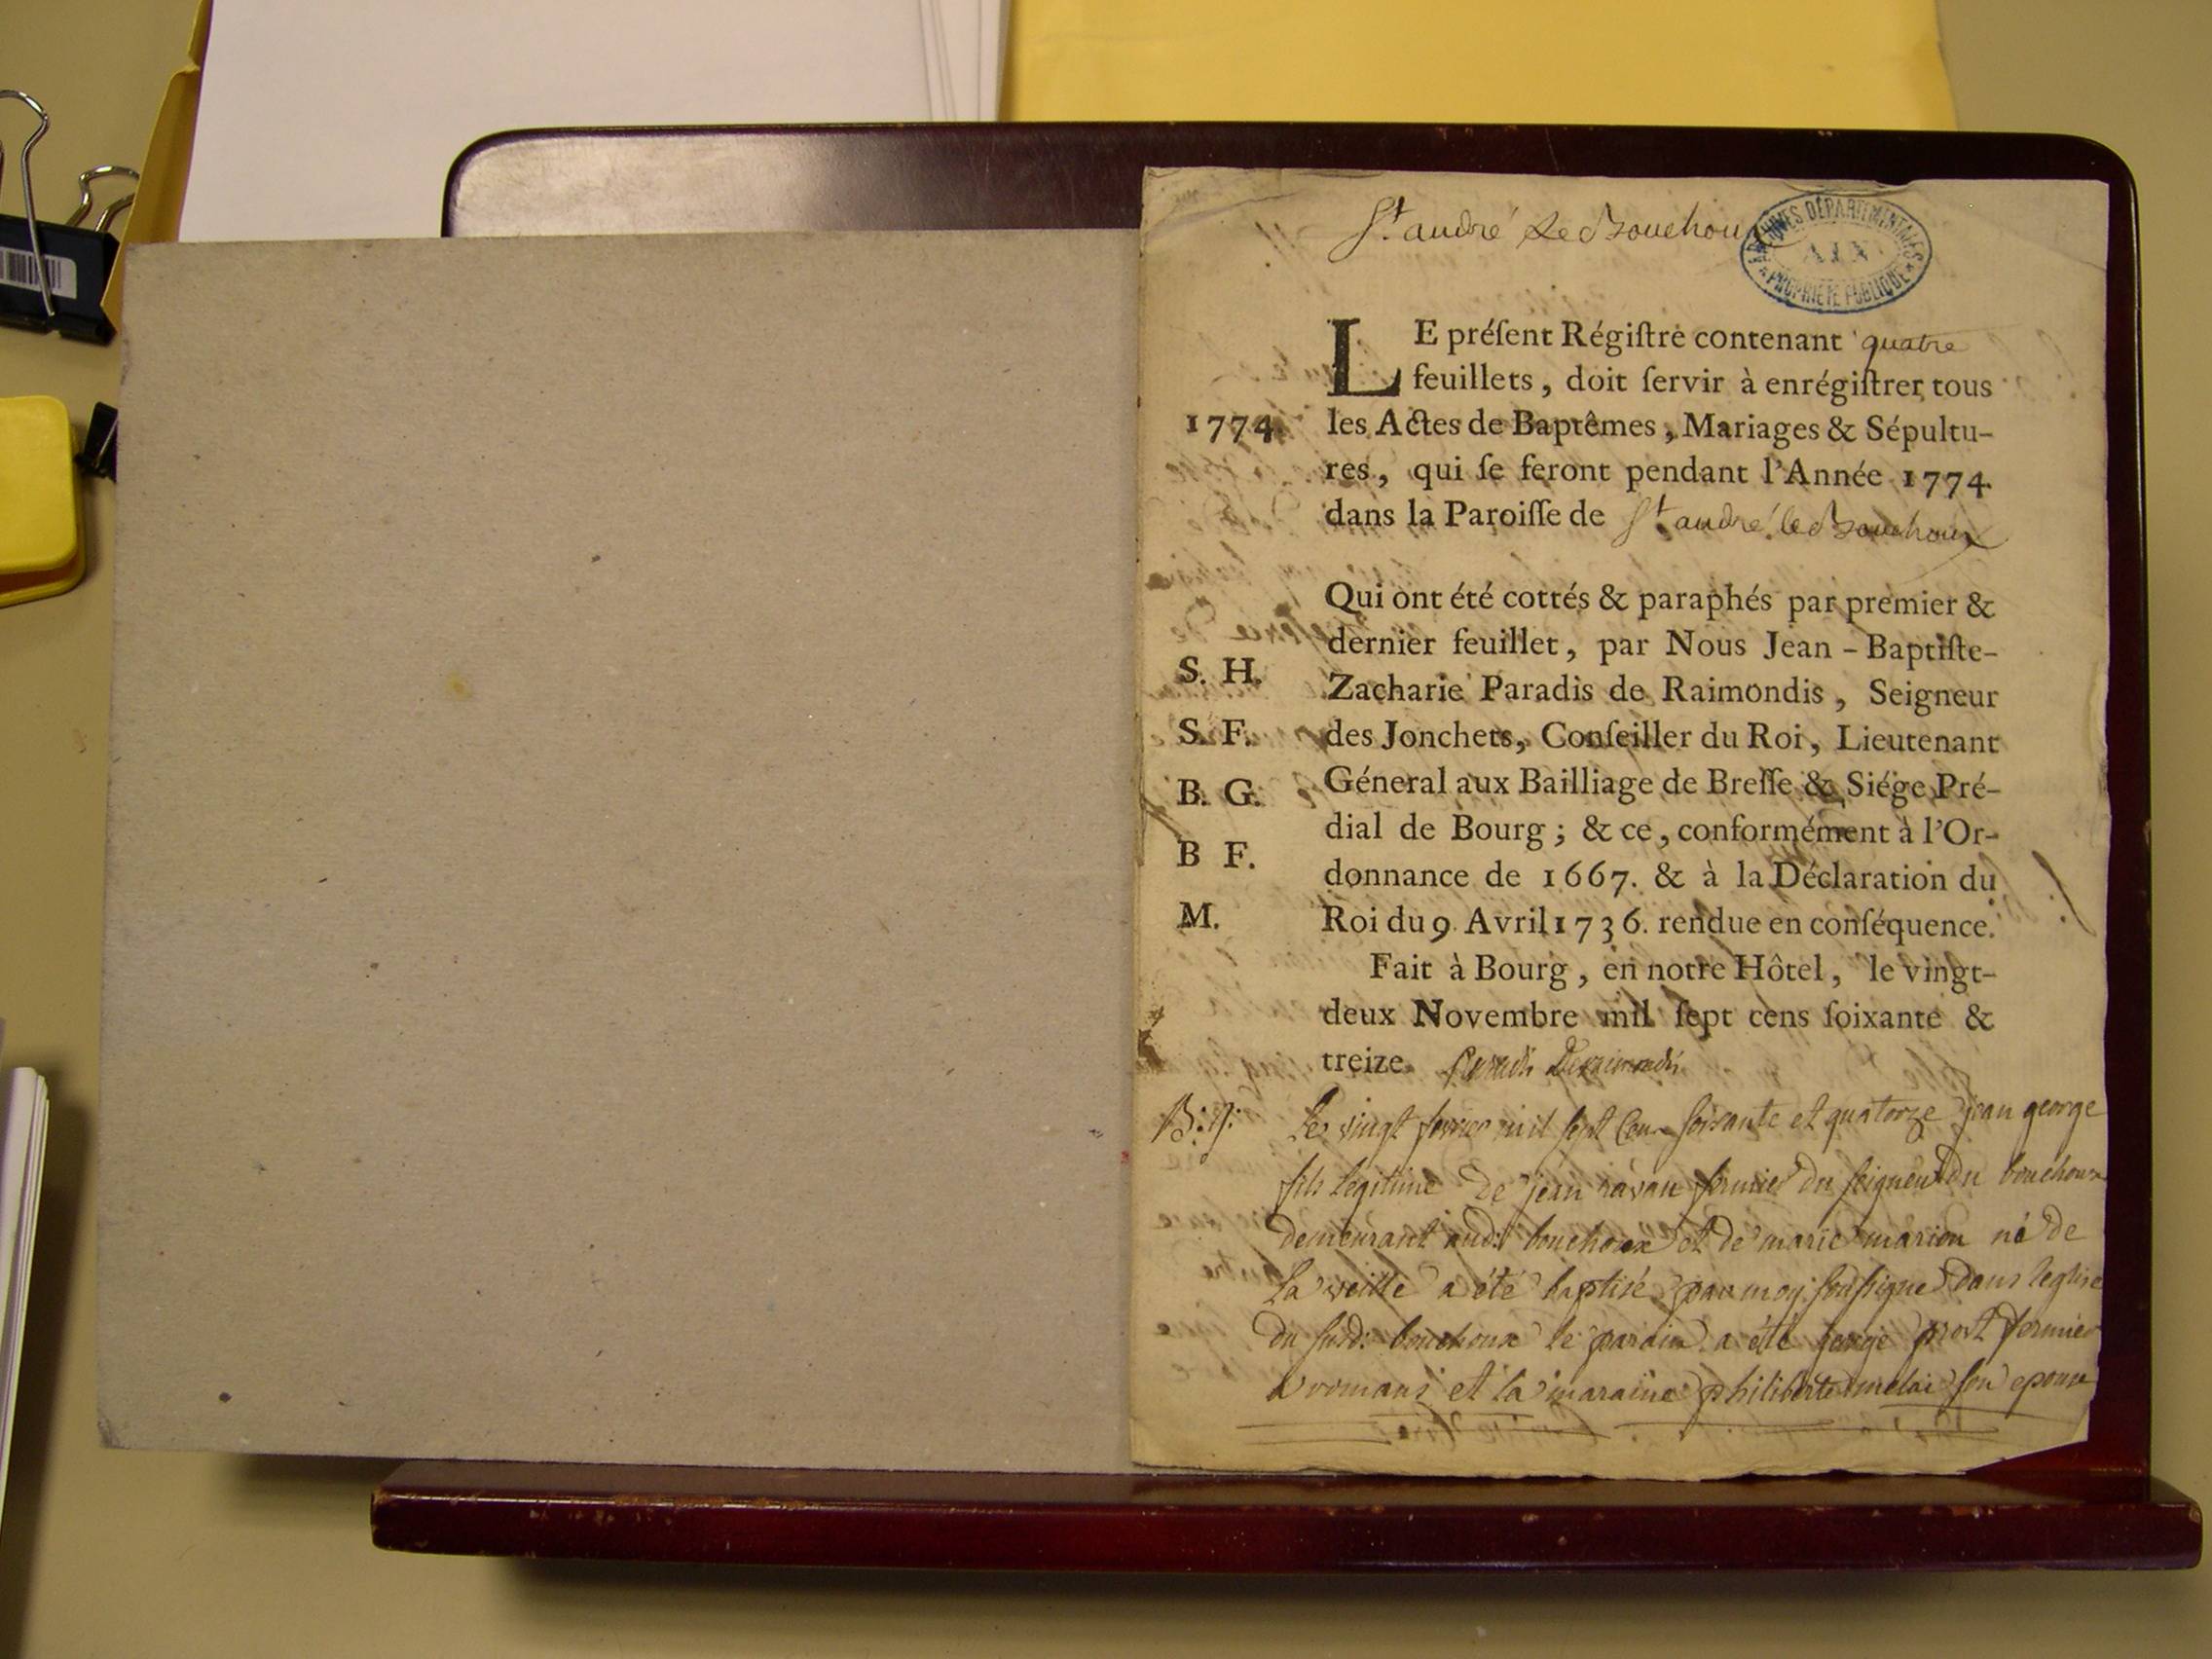 St. andré Le Bouchoux
ARCHIVES DÉPARTEMENTALES
AIN
PROPRIÉTÉ PUBLIQUE
LE préſent Régiſtre contenant quatre
feuillets, doit ſervir à enrégiſtrer tous
1774. les Actes de Baptêmes, Mariages & Sépultu-
res, qui ſe feront pendant l'Année 1774.
dans la Paroiſſe de St. andré le Bouchoux
Qui ont été cottés & paraphés par premier &
dernier feuillet, par Nous Jean-Baptiſte-
S. H. Zacharie Paradis de Raimondis, Seigneur
S. F. des Jonchets, Conſeiller du Roi, Lieutenant
B. G. Géneral aux Bailliage de Breſſe & Siége Pré-
dial de Bourg; & ce, conformément à l'Or-
B F. donnance de 1667. & à la Déclaration du
M. Roi du 9 Avril 1736. rendue en conſéquence.
Fait à Bourg, en notre Hôtel, le vingt-
deux Novembre mil ſept cens ſoixante &
treize. Paradis Deraimondis
Le vingt fevrier mil sept Cens soisante et quatorze jean george
fils legitime de jean ravan fermier du seigneur du bouchoux
demeurant aud: bouchoux et de marie marion né de
La veille a été baptisé par moy soussigné dans leglise
du susd: bouchoux le parain a été george prost fermier
a romans et la maraine philiberte melai son epouse